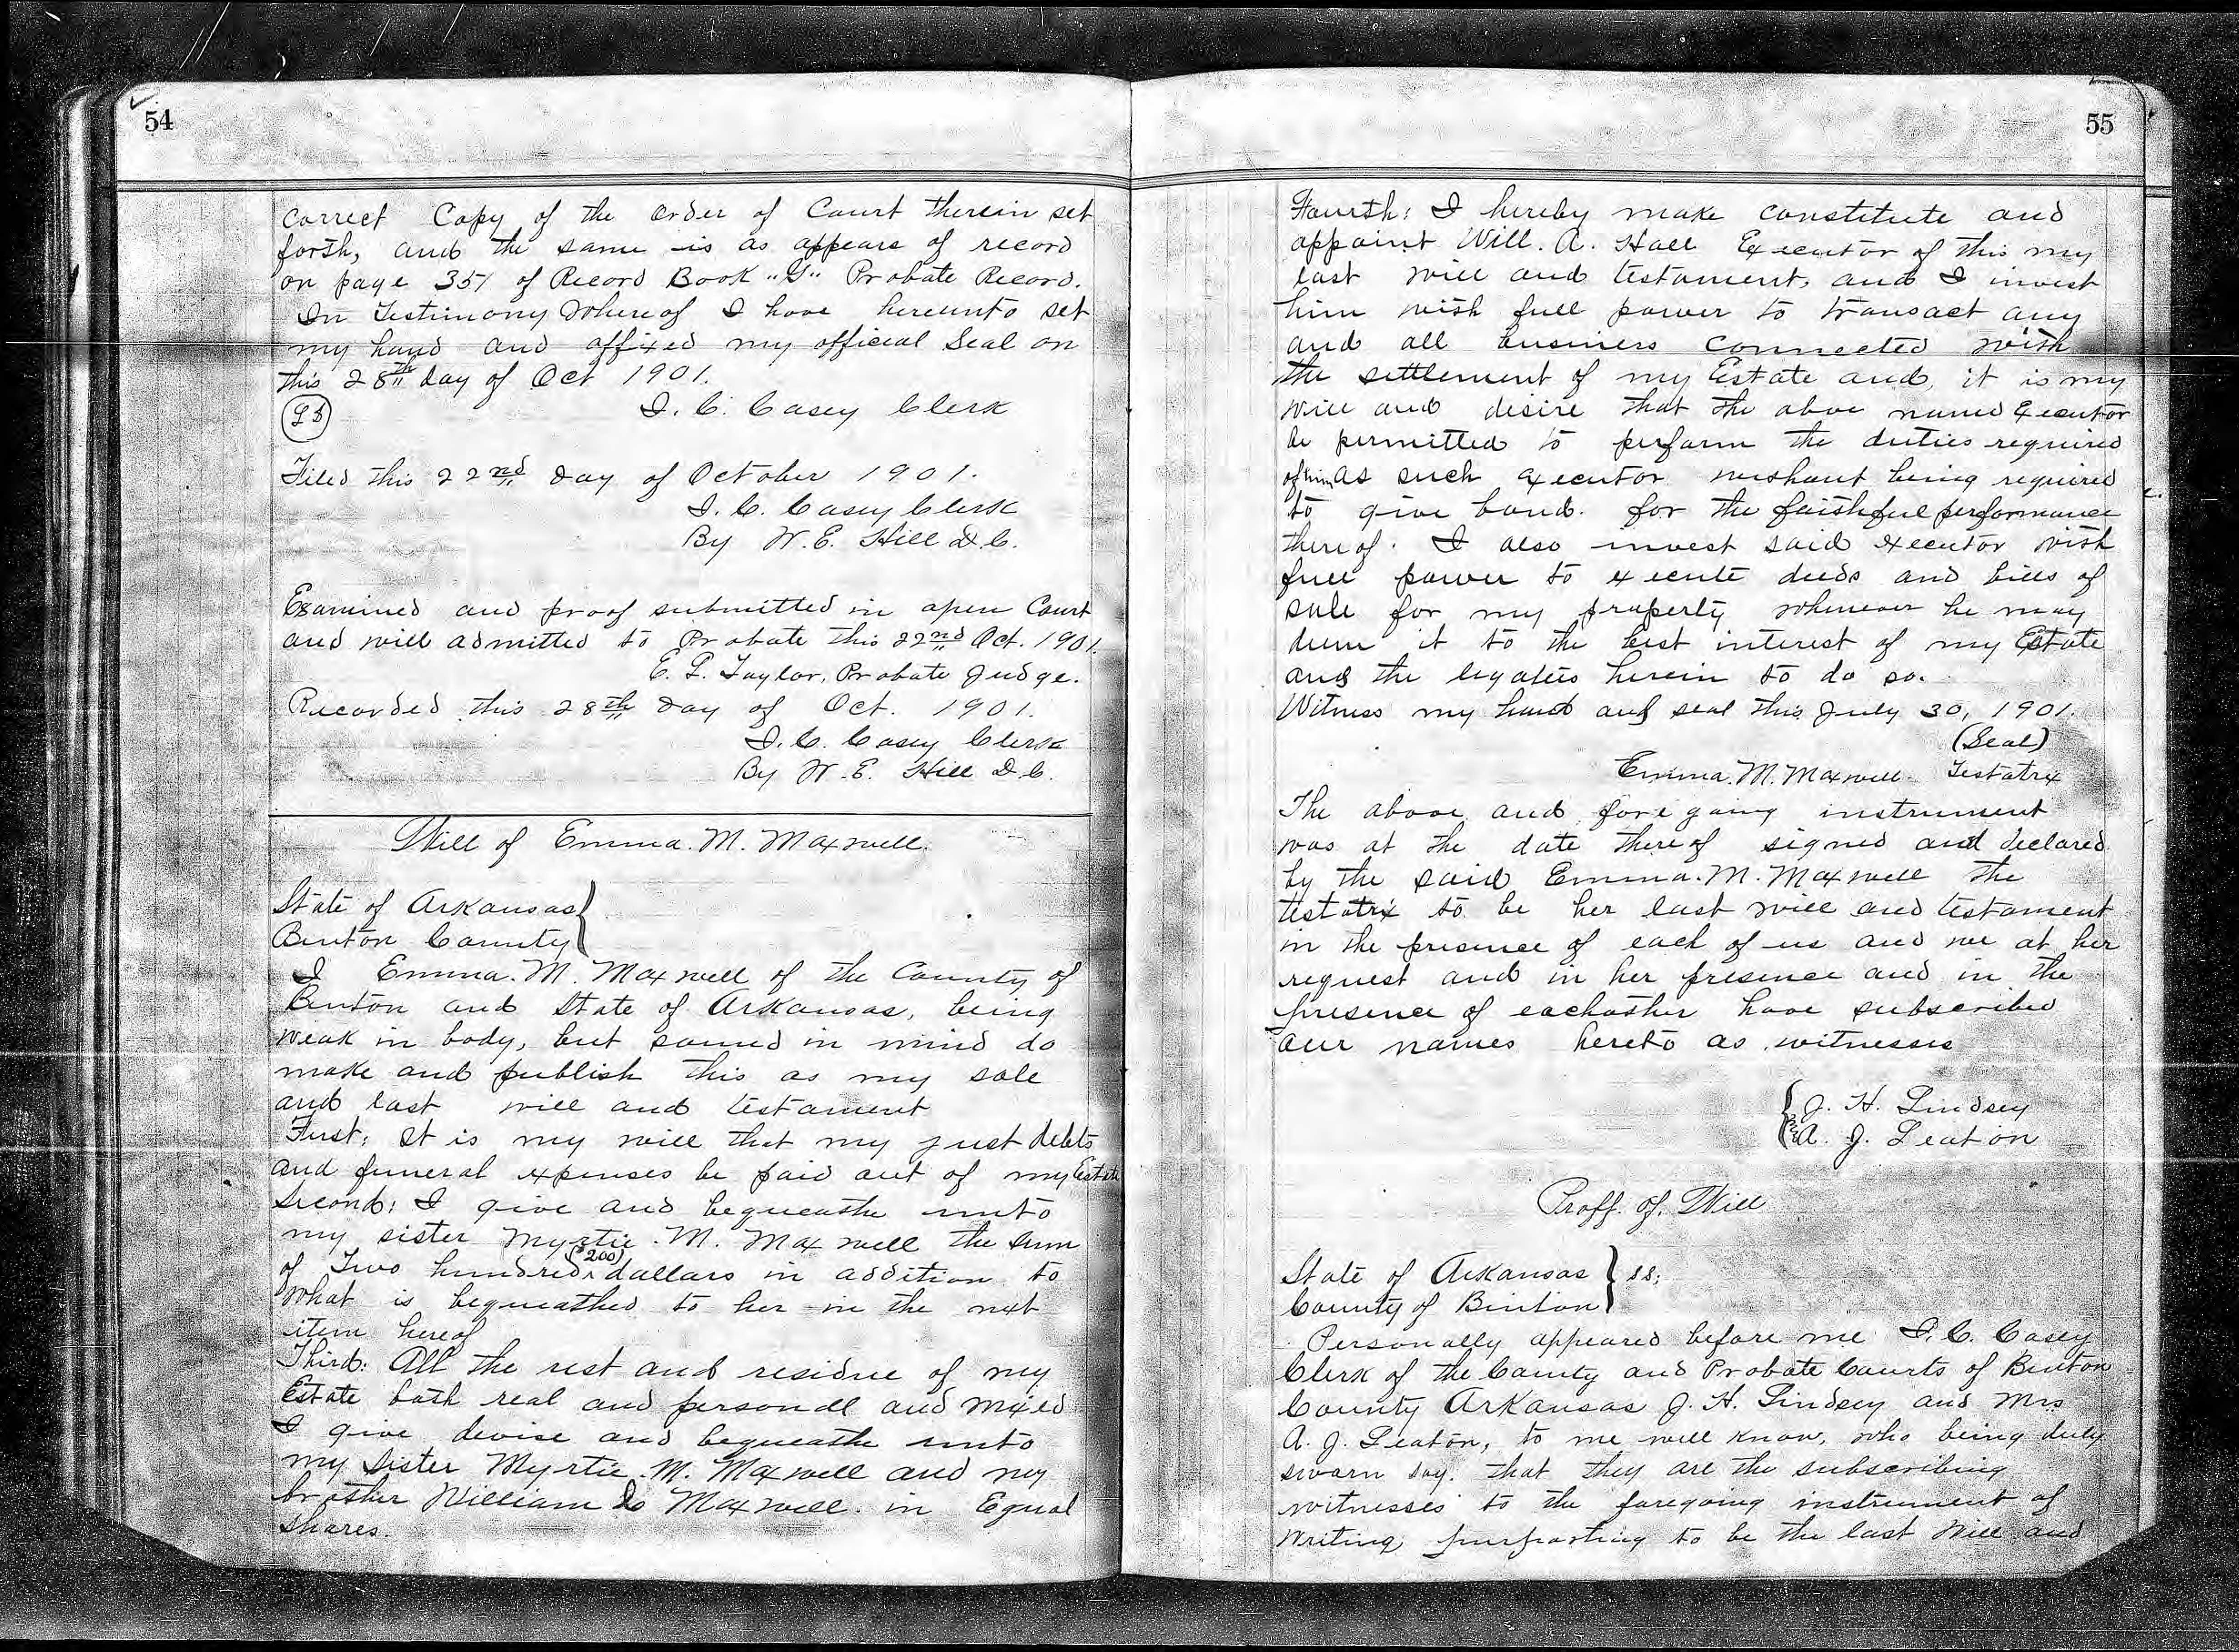 54
correct Copy of the order of Court therein set
forth, and the same is as appears of record
on page 351 of Record Book "G" Probate Record.
In Testimony Whereof I have hereunto set
my hand and affixed my official Seal on
this 28th day of Oct 1901.
LS
I. C. Casey Clerk
Filed this 22nd day of October 1901.
I. C. Casey Clerk
By W. E. Hill D.C.
Examined and proof submitted in open Court
and will admitted to Probate this 22nd Oct. 1901.
E. P. Taylor, Probate Judge.
Recorded this 28th day of Oct. 1901.
I. C. Casey Clerk
By W. E. Hill D.C.
Will of Emma. M. Maxwell.
State of Arkansas
Benton County
I Emma. M. Maxwell of the County of
Benton and State of Arkansas, being
weak in body, but sound in mind do
make and publish this as my sole
and last will and testament
First: It is my will that my just debts
and funeral expenses be paid out of my Estate
Second: I give and bequeathe unto
my sister Myrtie. M. Maxwell the sum
of Two hundred ($200) dollars in addition to
what is bequeathed to her in the next
item hereof
Third: All the rest and residue of my
Estate both real and personal and mixed
I give devise and bequeathe unto
my sister Myrtie. M. Maxwell and my
brother William Maxwell. in Equal
shares.
55
Fourth: I hereby make constitute and
appoint Will. A. Hall Executor of this my
last will and testament, and I invest
him with full power to transact any
and all business connected with
the settlement of my Estate and, it is my
will and desire that the above named Executor
be permitted to perform the duties required
of him as such executor without being required
to give bond. for the faithful performance
thereof. I also invest said executor with
full power to execute deeds and bills of
sale for my property whenever he may
deem it to the best interest of my Estate
and the legatees herein to do so.
Witness my hand and seal this July 30, 1901.
(Seal)
Emma. M. Maxwell. Testatrix
The above and foregoing instrument
was at the date thereof signed and declared
by the said Emma. M. Maxwell the
testatrix to be her last will and testament
in the presence of each of us and we at her
request and in her presence and in the
presence of eachother have subscribed
our names hereto as witnesses
J. H. Lindsey
A. J. Leaton
Proff. of. Will
State of Arkansas ss:
County of Benton
Personally appeared before me I. C. Casey
Clerk of the County and Probate Courts of Benton
County Arkansas J. H. Lindsey and Mrs
A. J. Leaton, to me well know, who being duly
sworn say. that they are the subscribing
witnesses to the foregoing instrument of
writing purporting to be the last Will and